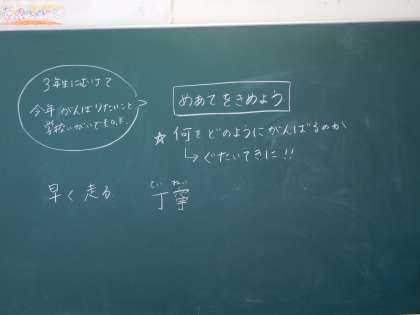 3年生にむけて
今年がんばりたいこと
学校いがいでもO.K.
めあてをきめよう
☆何をどのようにがんばるのか
↳ぐたいてきに!!
早く走る
ていねい
丁寧